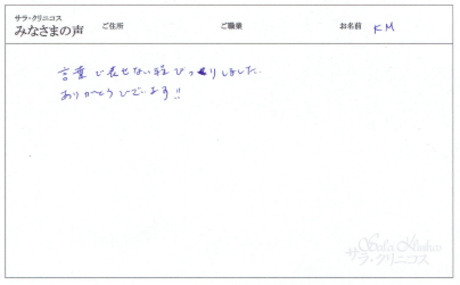 サラ・クリニコス
みなさまの声 ご住所 ご職業 お名前 KM
言葉で表せない程びっくりしました.
ありがとうございます!!
Sala Klinikos
サラ・クリニコス